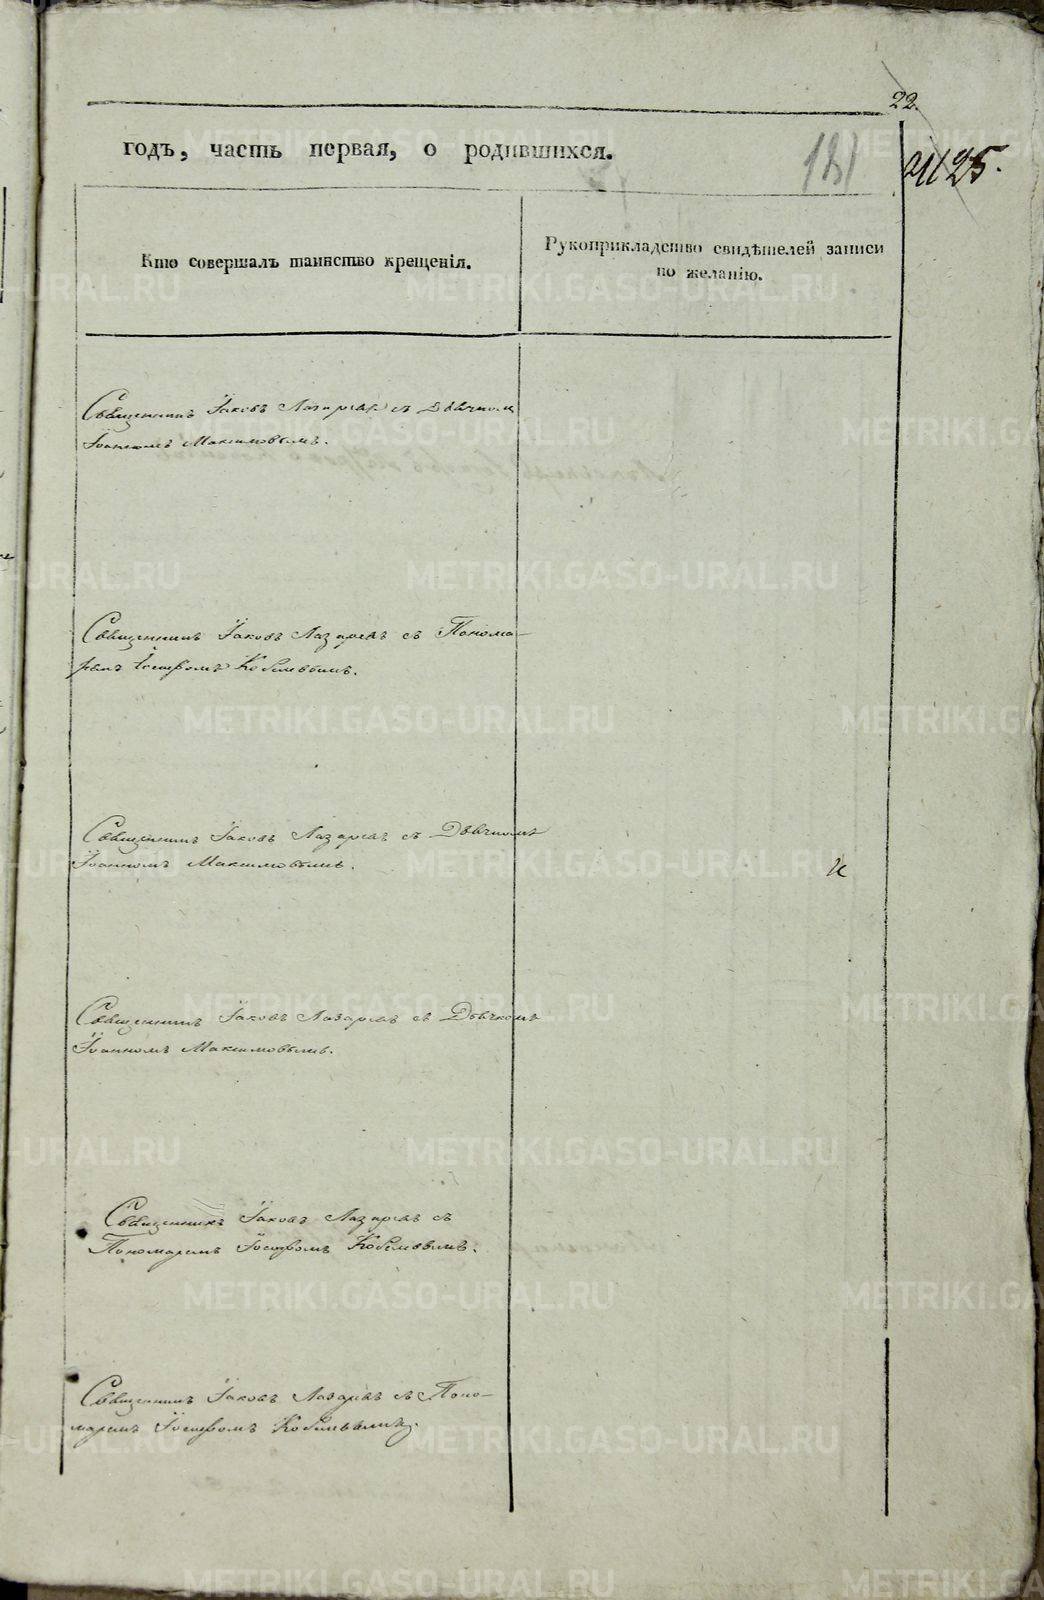 22.
годъ, часть первая, о родившихся.
121
25.
Кто совершалъ таинство крещенія.
Рукоприкладство свидѣтелей записи
по желанію.
Священникъ Іаковъ Лазаревъ съ Дьячкомъ
Іоанномъ Максимовымъ.
Священникъ Іаковъ Лазаревъ съ Понома-
ремъ Іосифомъ Кобелевымъ.
Священникъ Іаковъ Лазаревъ съ Дьячкомъ
Іоанномъ Максимовымъ.
Священникъ Іаковъ Лазаревъ съ Дьячкомъ
Іоанномъ Максимовымъ.
Священникъ Іаковъ Лазаревъ съ
Пономаремъ Іосифомъ Кобелевымъ.
Священникъ Іаковъ Лазаревъ съ Поно-
маремъ Іосифомъ Кобелевымъ.
METRIKI.GASO-URAL.RU